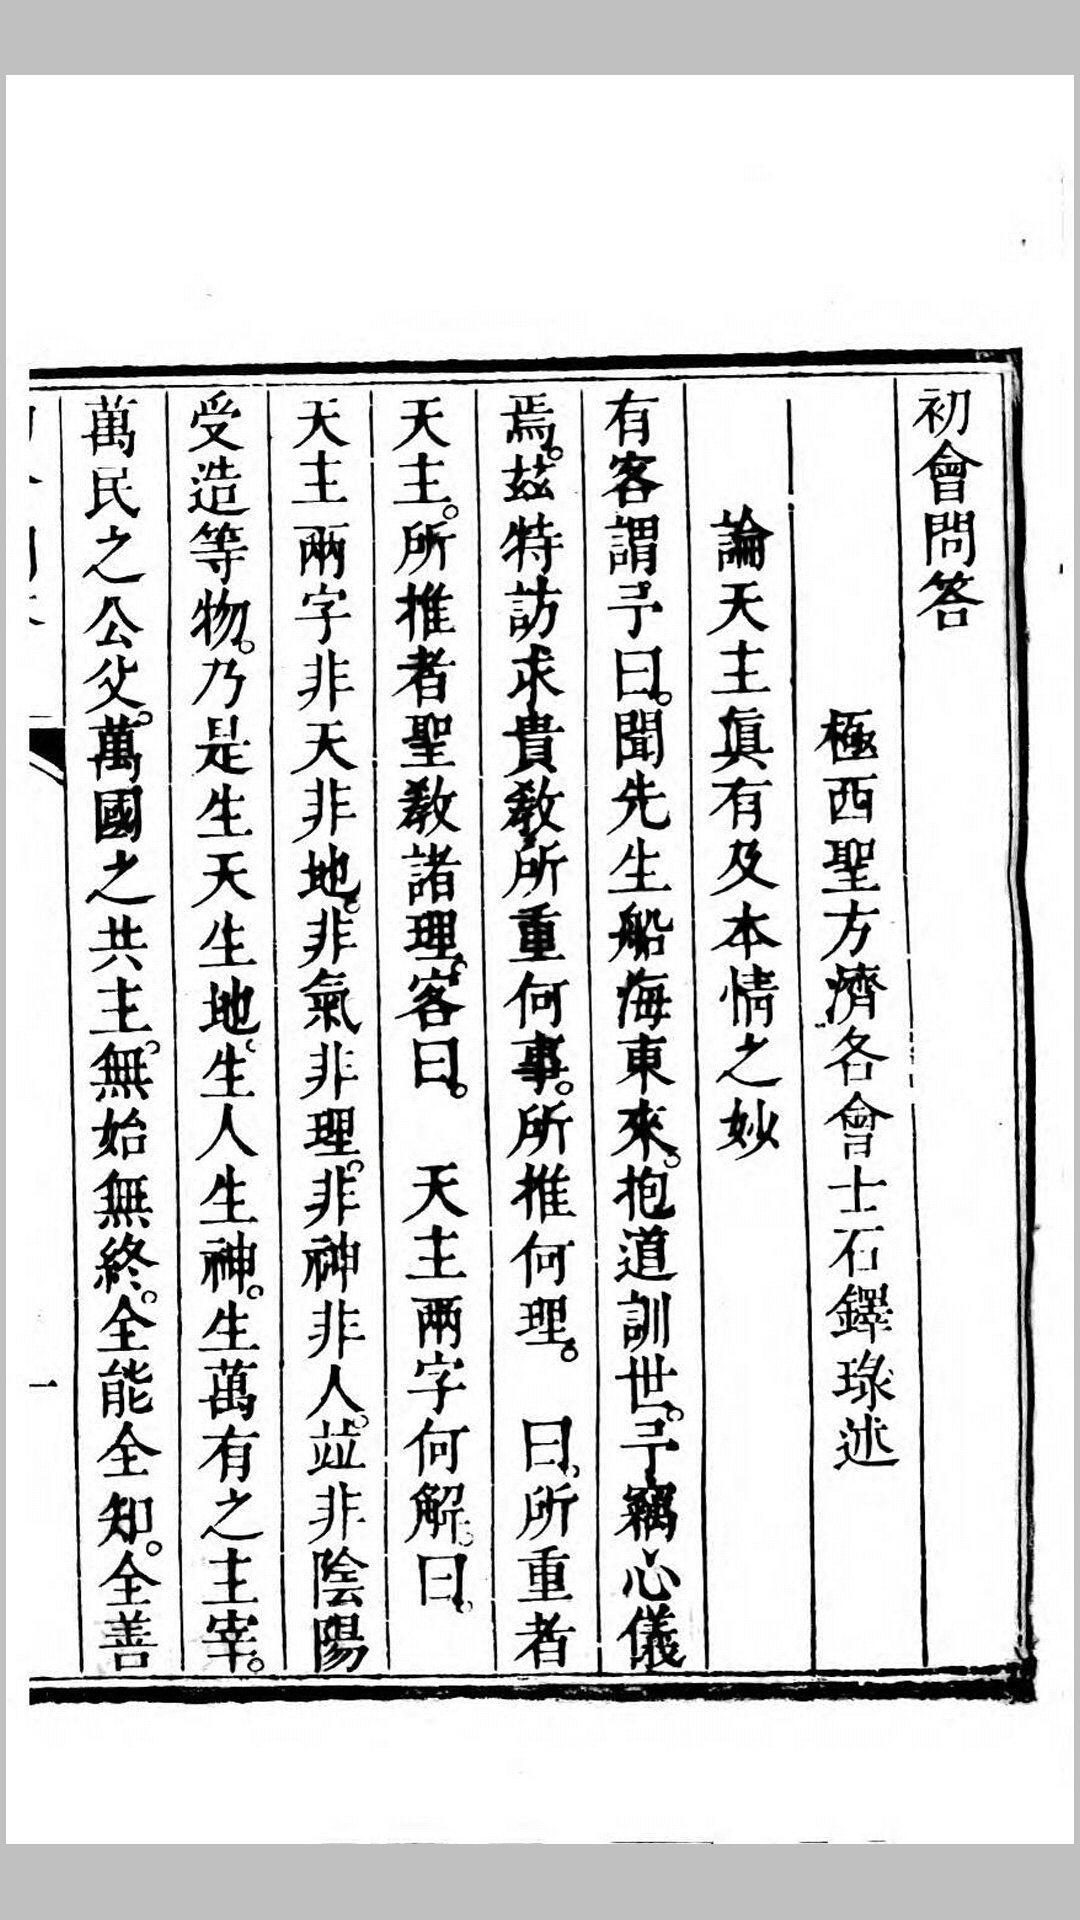 初會問答
極西聖方濟各會士石鐸琭述
論天主眞有及本情之妙
有客謂予曰。聞先生船海東來。抱道訓世。予竊心儀
焉。茲特訪求貴敎所重何事。所推何理。 曰。所重者
天主。所推者聖敎諸理。客曰。 天主兩字何解。曰。
天主兩字非天非地。非氣非理。非神非人。並非陰陽
受造等物。乃是生天生地。生人生神。生萬有之主宰。
萬民之公父。萬國之共主。無始無終。全能全知。全善
一